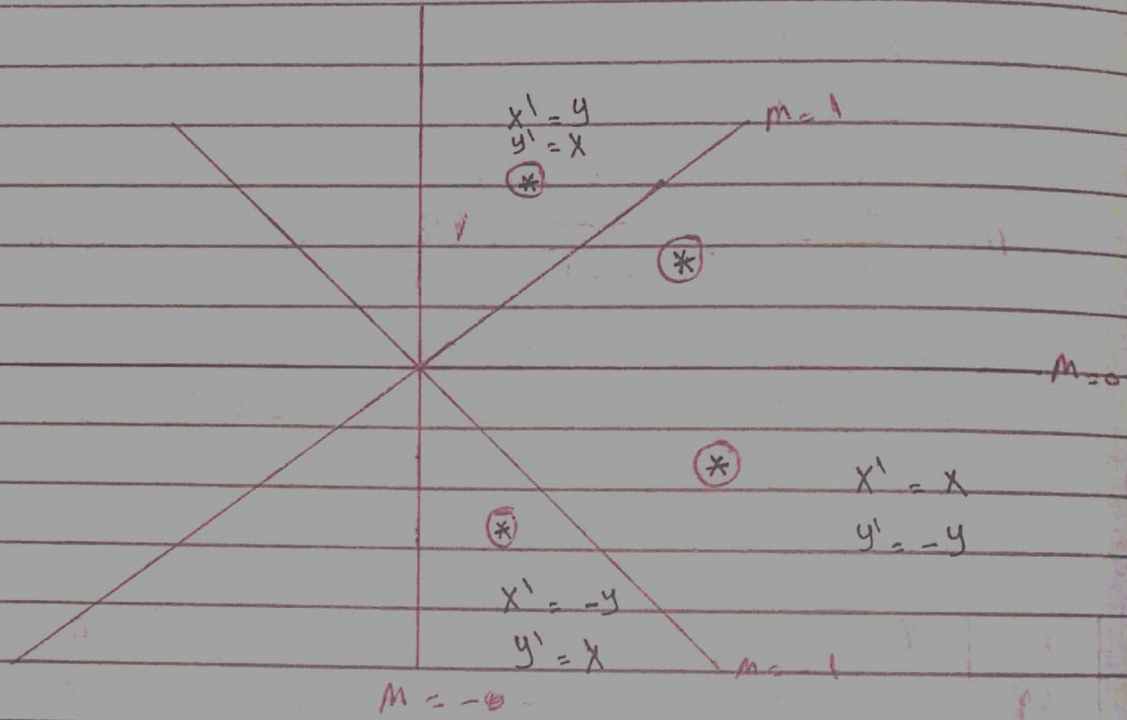 x' = y
y' = x
*
m = 1
*
M = 0
*
x' = x
y' = -y
*
x' = -y
y' = x
m = -1
M = -